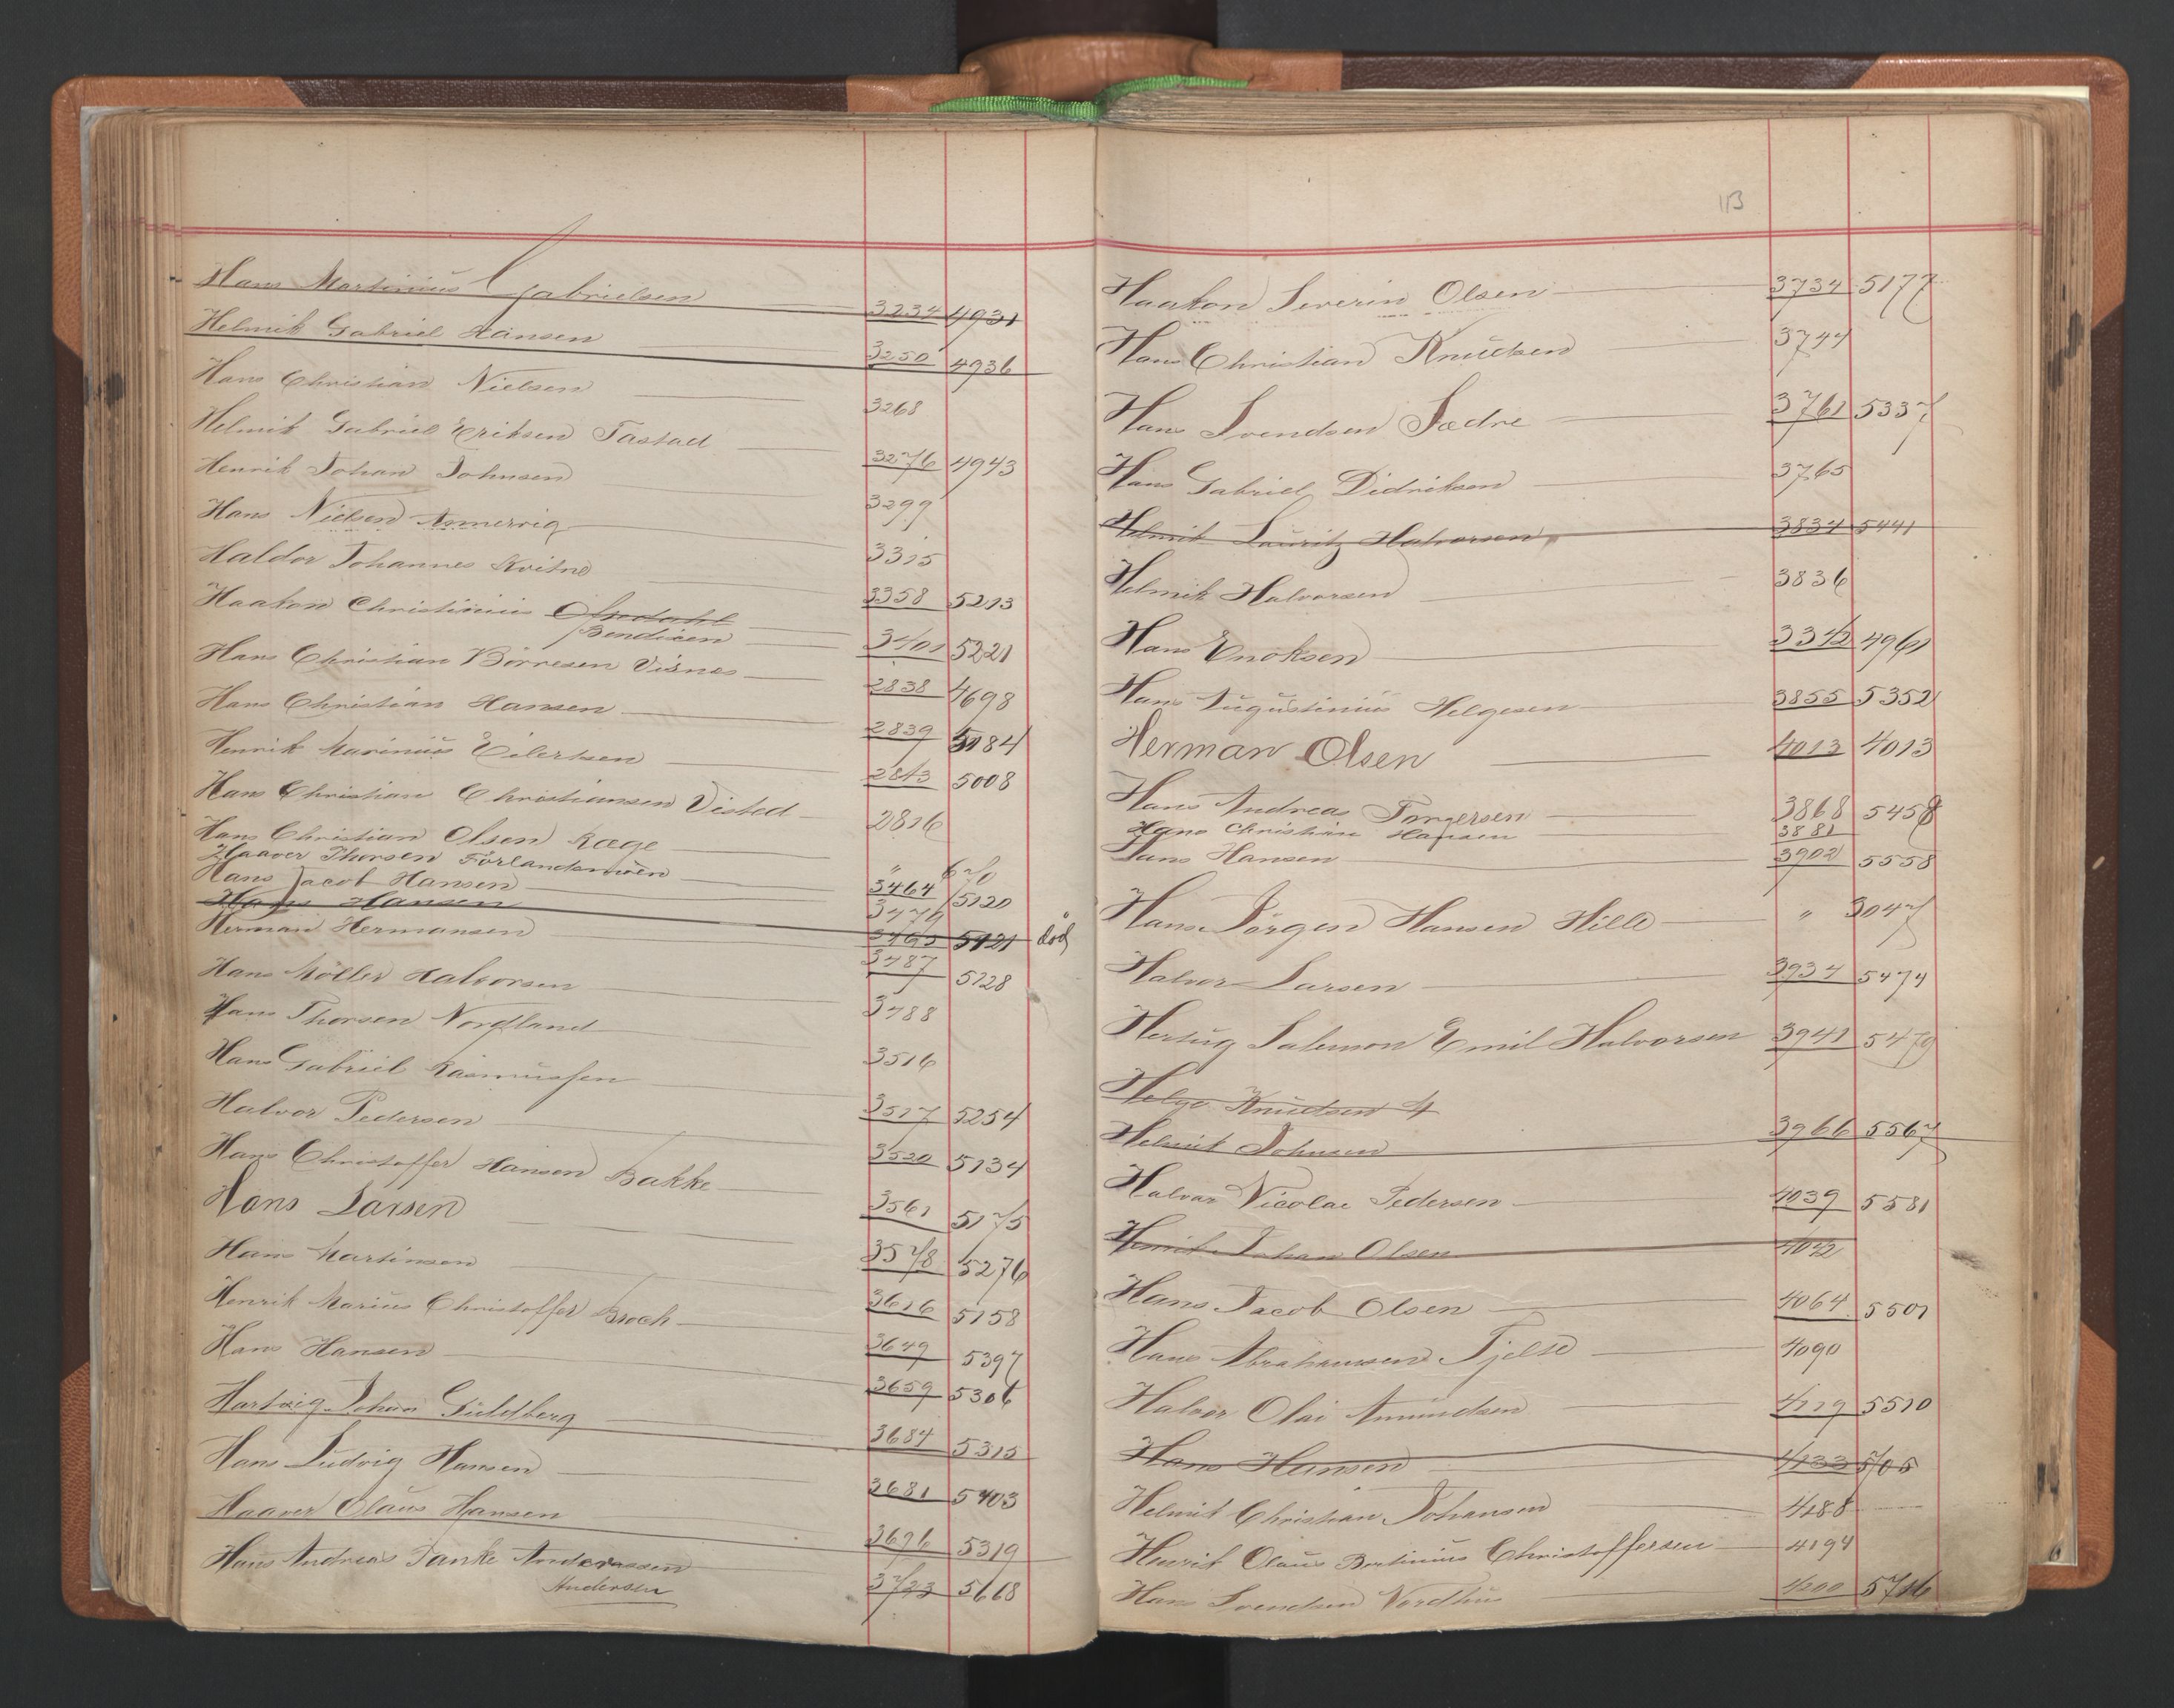 Hans Martinius Gabrielsen 3234 4931
Helmik Gabriel Hansen 3250 4936
Hans Christian Nielsen 3268
Helmik Gabriel Eriksen Tastad 3276 4943
Henrik Johan Johnsen 3299
Hans Nielsen Ammervig 3315
Haldor Johannes Kvitne 3358 5213
Haakon Christinius Opdahl
Bendixen 3401 5221
Hans Christian Börresen Visnes 2838 4698
Hans Christian Hansen 2839 5184
Henrik Marinius Eilertsen 2843 5008
Hans Christian Christiansen Visted 2816
Hans Christian Olsen Ræge " 670
Haaver Thorsen Förlandsmoen 3464 5120
Hans Jacob Hansen 3474
Hans Hansen 3465 5121 död
Herman Hermansen 3487 5128
Hans Möller Halvorsen 3488
Hans Thorsen Nordland 3516
Hans Gabriel Rasmussen 3517 5254
Halvor Pedersen 3520 5134
Hans Christoffer Hansen Bakke 3561 5175
Hans Larsen 3578 5276
Hans Martinsen 3616 5158
Henrik Marius Christoffer Broch 3649 5397
Hans Hansen 3659 5306
Hartvig Johan Guldberg 3684 5315
Hans Ludvig Hansen 3681 5403
Haaver Olaus Hansen 3696 5319
Hans Andreas Tanke Anderassen
Andersen 3723 5668
113
Haakon Severin Olsen 3734 5177
Hans Christian Knudsen 3744
Hans Svendsen Sædre 3761 5337
Hans Gabriel Didriksen 3765
Helmik Lauritz Halvorsen 3834 5441
Helmik Halvorsen 3836
Hans Enoksen 3342 4961
Hans Augustinius Helgesen 3855 5352
Herman Olsen 4013 4013
Hans Andreas Torgersen 3868 5458
Hans Christian Hansen 3881
Hans Hansen 3902 5558
Hans Jörgen Hansen Hille " 3047
Halvor Larsen 3934 5474
Hertug Salemon Emil Halvorsen 3941 5479
Helge Knudsen
Helmik Johnsen 3966 5567
Halvor Nicolai Pedersen 4039 5581
Henrik Johan Olsen 4042
Hans Jacob Olsen 4064 5501
Hans Abrahamsen Tjelse 4090
Halvor Olai Amundsen 4119 5510
Hans Hansen 4133 5705
Helmik Christian Johansen 4188
Henrik Olaus Bertinius Christoffersen 4194
Hans Svendsen Nordhus 4200 5716